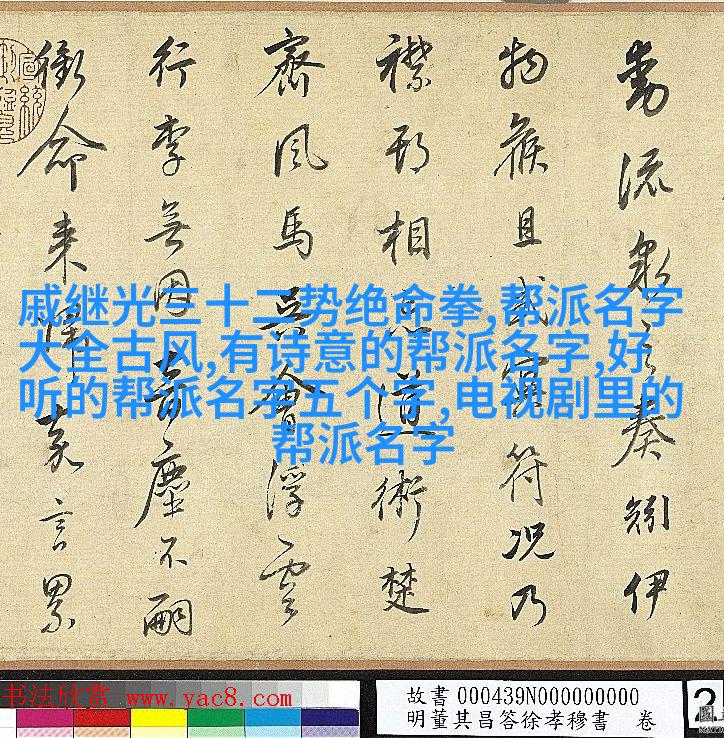 動流泉之奏矧伊
物候且或冥符况乃
襟期相忘道術楚
齊風馬吳會浮雲
行李無因音塵不嗣
銜命来歸嘉言累
戚继光三十二势绝命拳,帮派名字
大全古风,有诗意的帮派名字,好
听的帮派名字五个字,电视剧里的
帮派名字
书法欣赏 www.yac8.com
故書 000439N000000000
明董其昌答徐孝穆書 卷
2